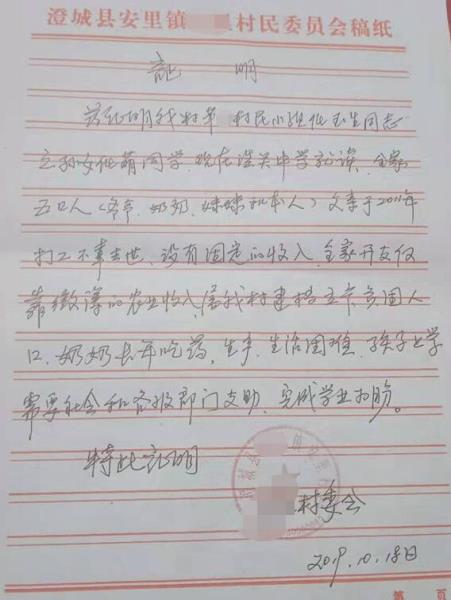 澄城县安里镇 村民委员会稿纸
证 明
兹证明我村第 村民小组仙玉生同志
之孙女仙萌同学,现在洪关中学就读,全家
五口人(爷爷、奶奶、妹妹和本人)父亲于2011年
打工不幸去世,没有固定的收入,全家开支仅
靠微薄的农业收入,属我村建档立卡贫困人
口,奶奶长年吃药,生产、生活困难,孩子上学
需要社会和各级部门支助,完成学业为盼。
特此证明
村委会
2019.10.18日
第 页